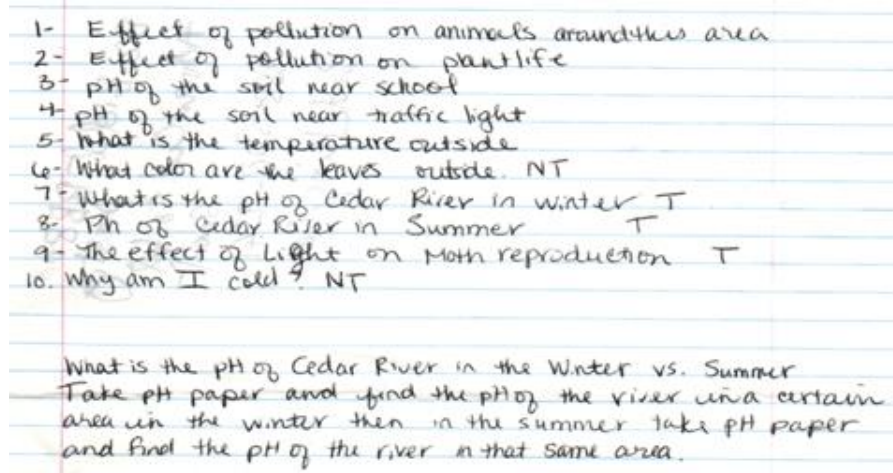 1- Effect of pollution on animals around this area
2- Effect of pollution on plantlife
3- pH of the soil near school
4- pH of the soil near traffic light
5- What is the temperature outside
6- What color are the leaves outside. NT
7- What is the pH of Cedar River in winter T
8- Ph of Cedar River in Summer T
9- The effect of Light on Moth reproduction T
10. Why am I cold? NT
What is the pH of Cedar River in the Winter vs. Summer
Take pH paper and find the pH of the river in a certain
area in the winter then in the summer take pH paper
and find the pH of the river in that same area.